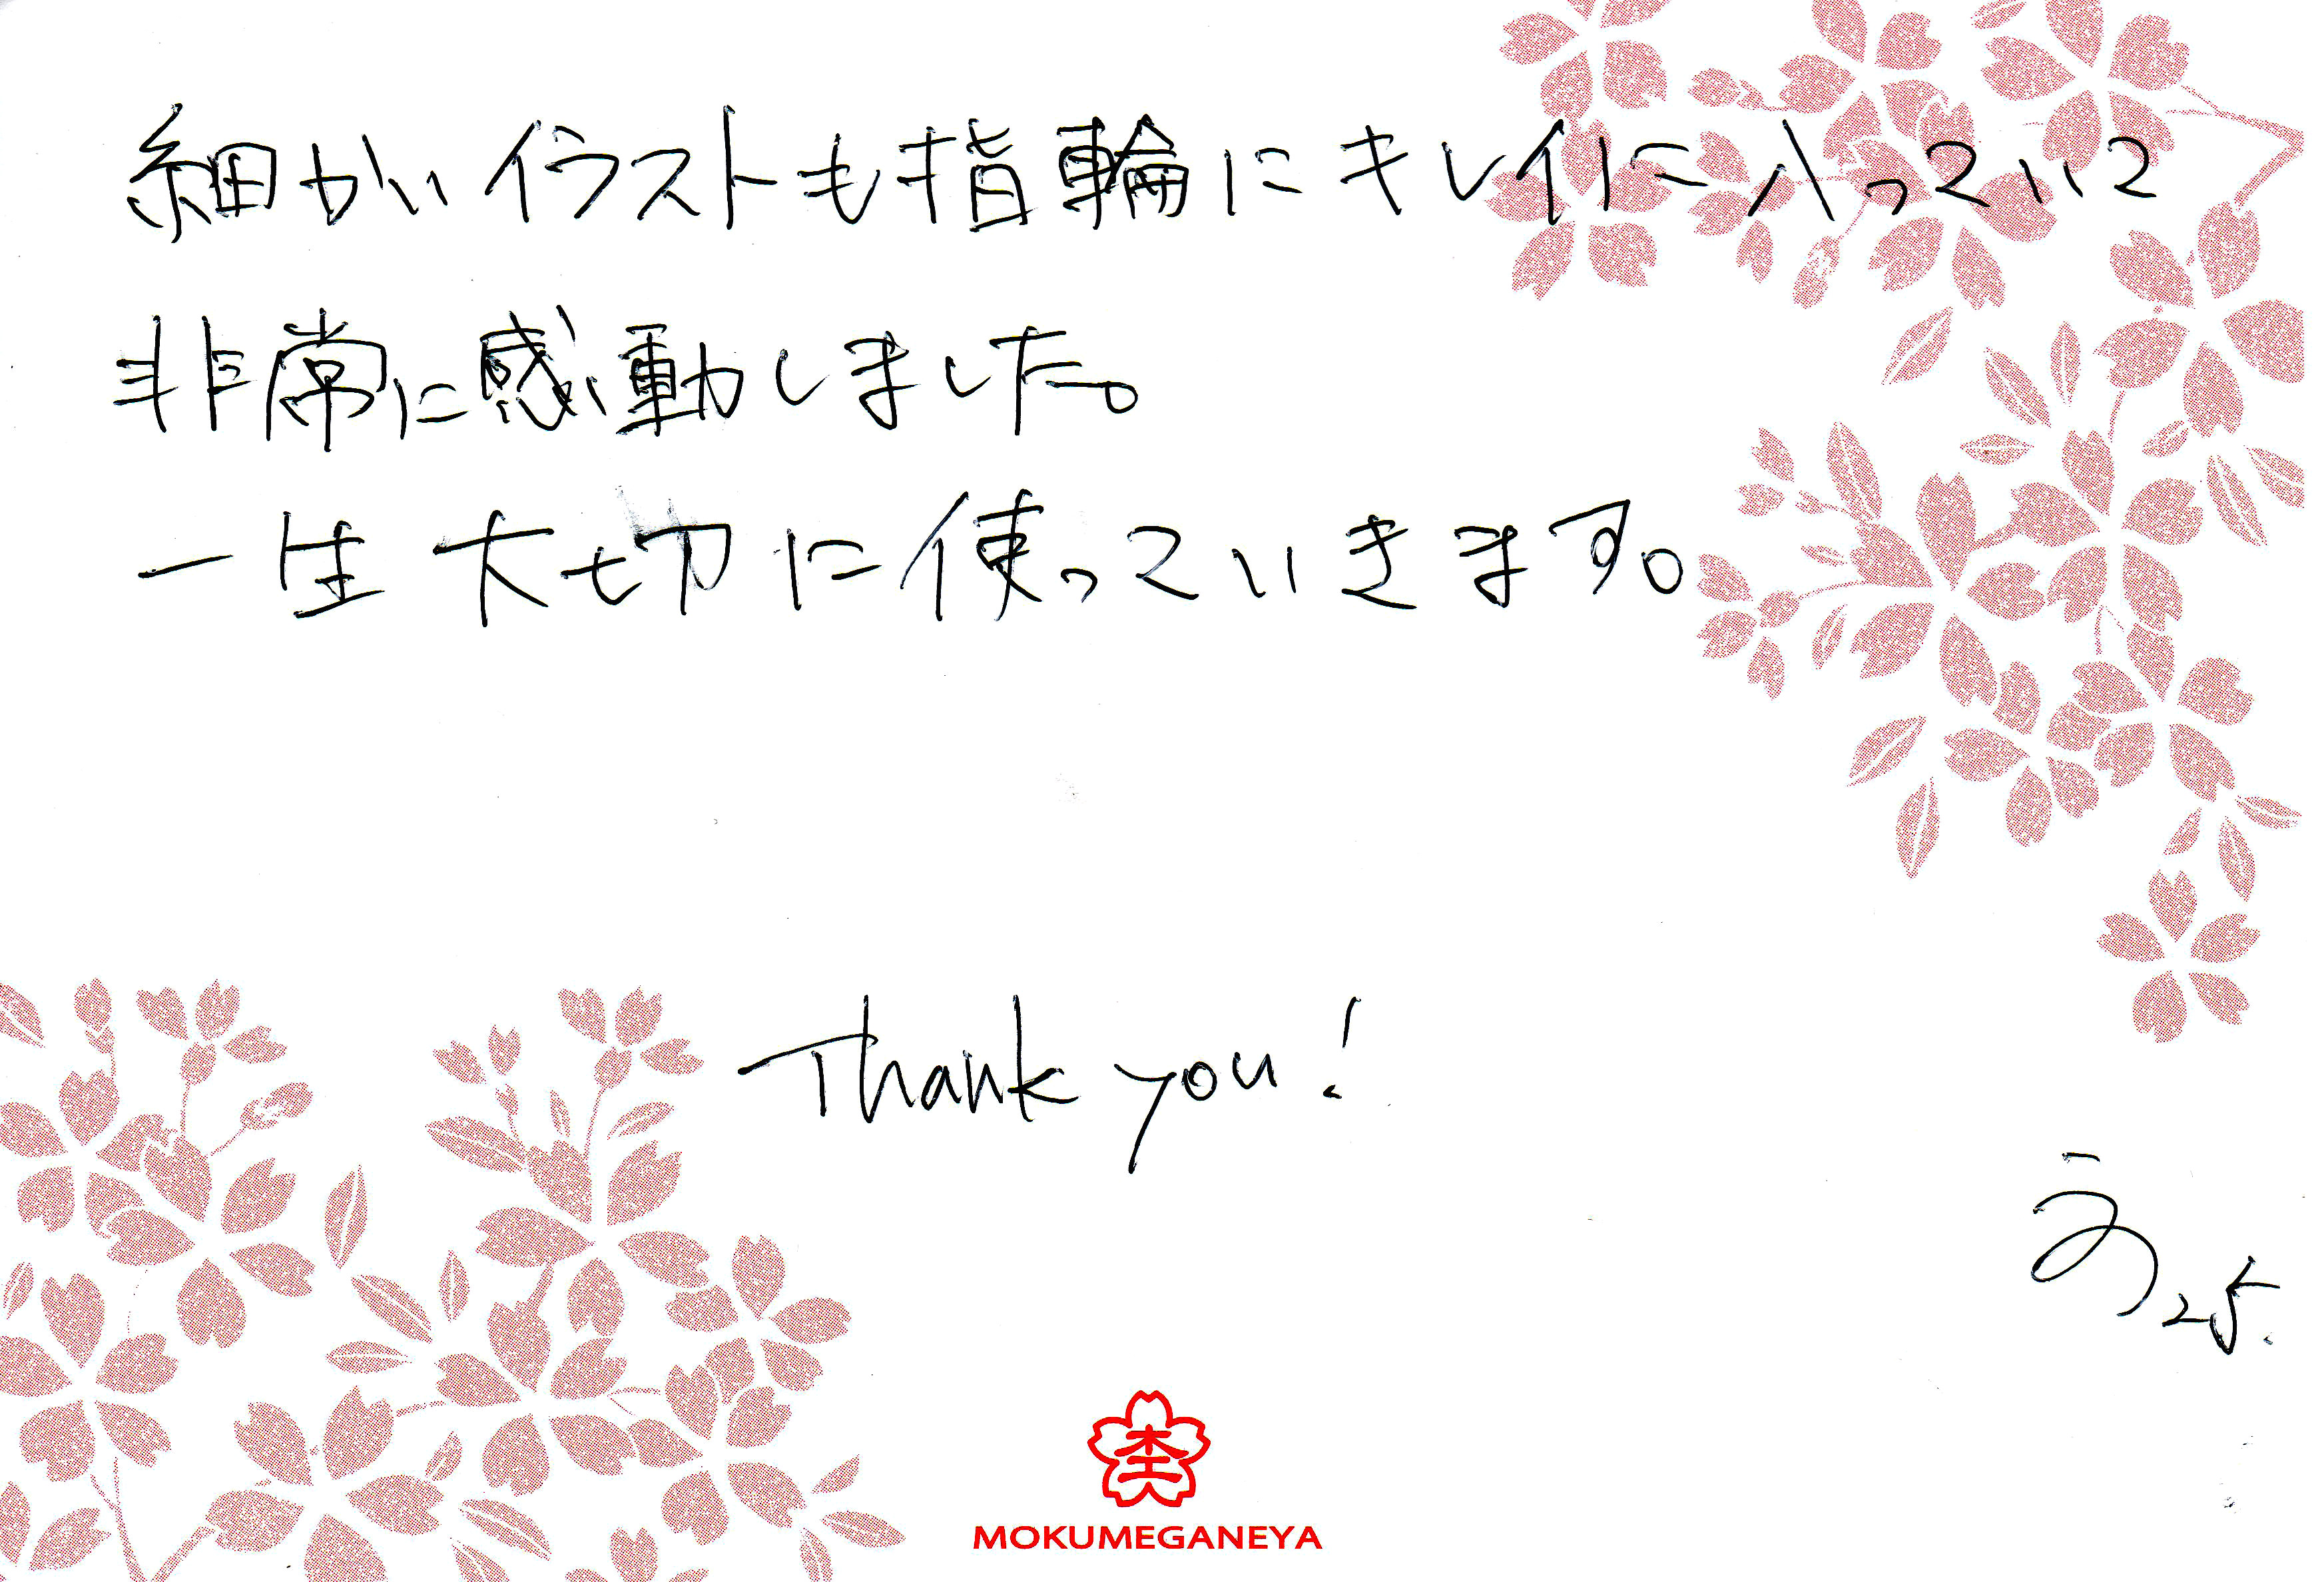 細かいイラストも指輪にキレイに入っていて
非常に感動しました。
一生大切に使っていきます。
Thank you!
MOKUMEGANEYA